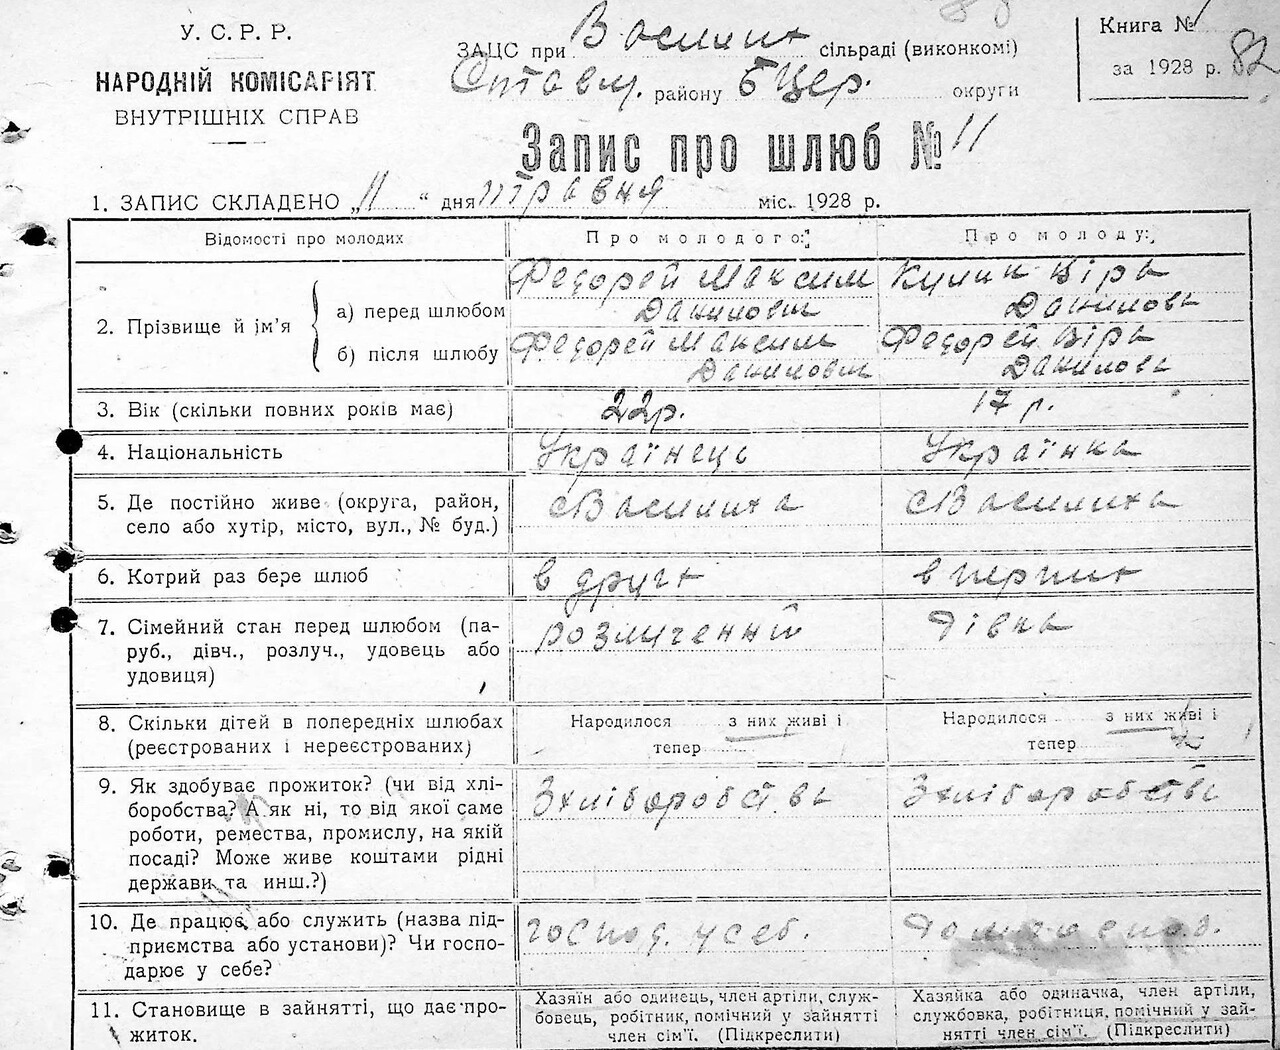 У. С. Р. Р.
НАРОДНІЙ КОМІСАРІЯТ
ВНУТРІШНІХ СПРАВ
ЗАЦС при Василих сільраді (виконкомі)
Ставищ. району БЦер. округи
Книга №
за 1928 р. 82
Запис про шлюб № 11
1. ЗАПИС СКЛАДЕНО „11 “ дня травня міс. 1928 р.
Відомості про молодих
Про молодого:
Про молоду:
2. Прізвище й ім'я
а) перед шлюбом
Федорей Максим
Данилович
Кулик Віра
Данилова
б) після шлюбу
Федорей Максим
Данилович
Федорей Віра
Данилова
3. Вік (скільки повних років має) 22р. 17 р.
4. Національність Українець Українка
5. Де постійно живе (округа, район,
село або хутір, місто, вул., № буд.)
с Василиха с Василиха
6. Котрий раз бере шлюб в друге в перши
7. Сімейний стан перед шлюбом (па-
руб., дівч., розлуч., удовець або
удовиця)
розлучений дівка
8. Скільки дітей в попередніх шлюбах
(реєстрованих і нереєстрованих)
Народилося з них живі і
тепер
Народилося з них живі і
тепер
9. Як здобуває прожиток? (чи від хлі-
боробства? А як ні, то від якої саме
роботи, ремества, промислу, на якій
посаді? Може живе коштами рідні
держави та инш.?)
Зхліборобства Зхліборобства
10. Де працює або служить (назва під-
приємства або установи)? Чи госпо-
дарює у себе?
господ. у себ.
11. Становище в зайнятті, що дає про-
житок.
Хазяїн або одинець, член артіли, служ-
бовець, робітник, помічний у зайнятті
член сім'ї. (Підкреслити)
Хазяйка або одиначка, член артіли,
службовка, робітниця, помічний у зай-
нятті член сім'ї. (Підкреслити)